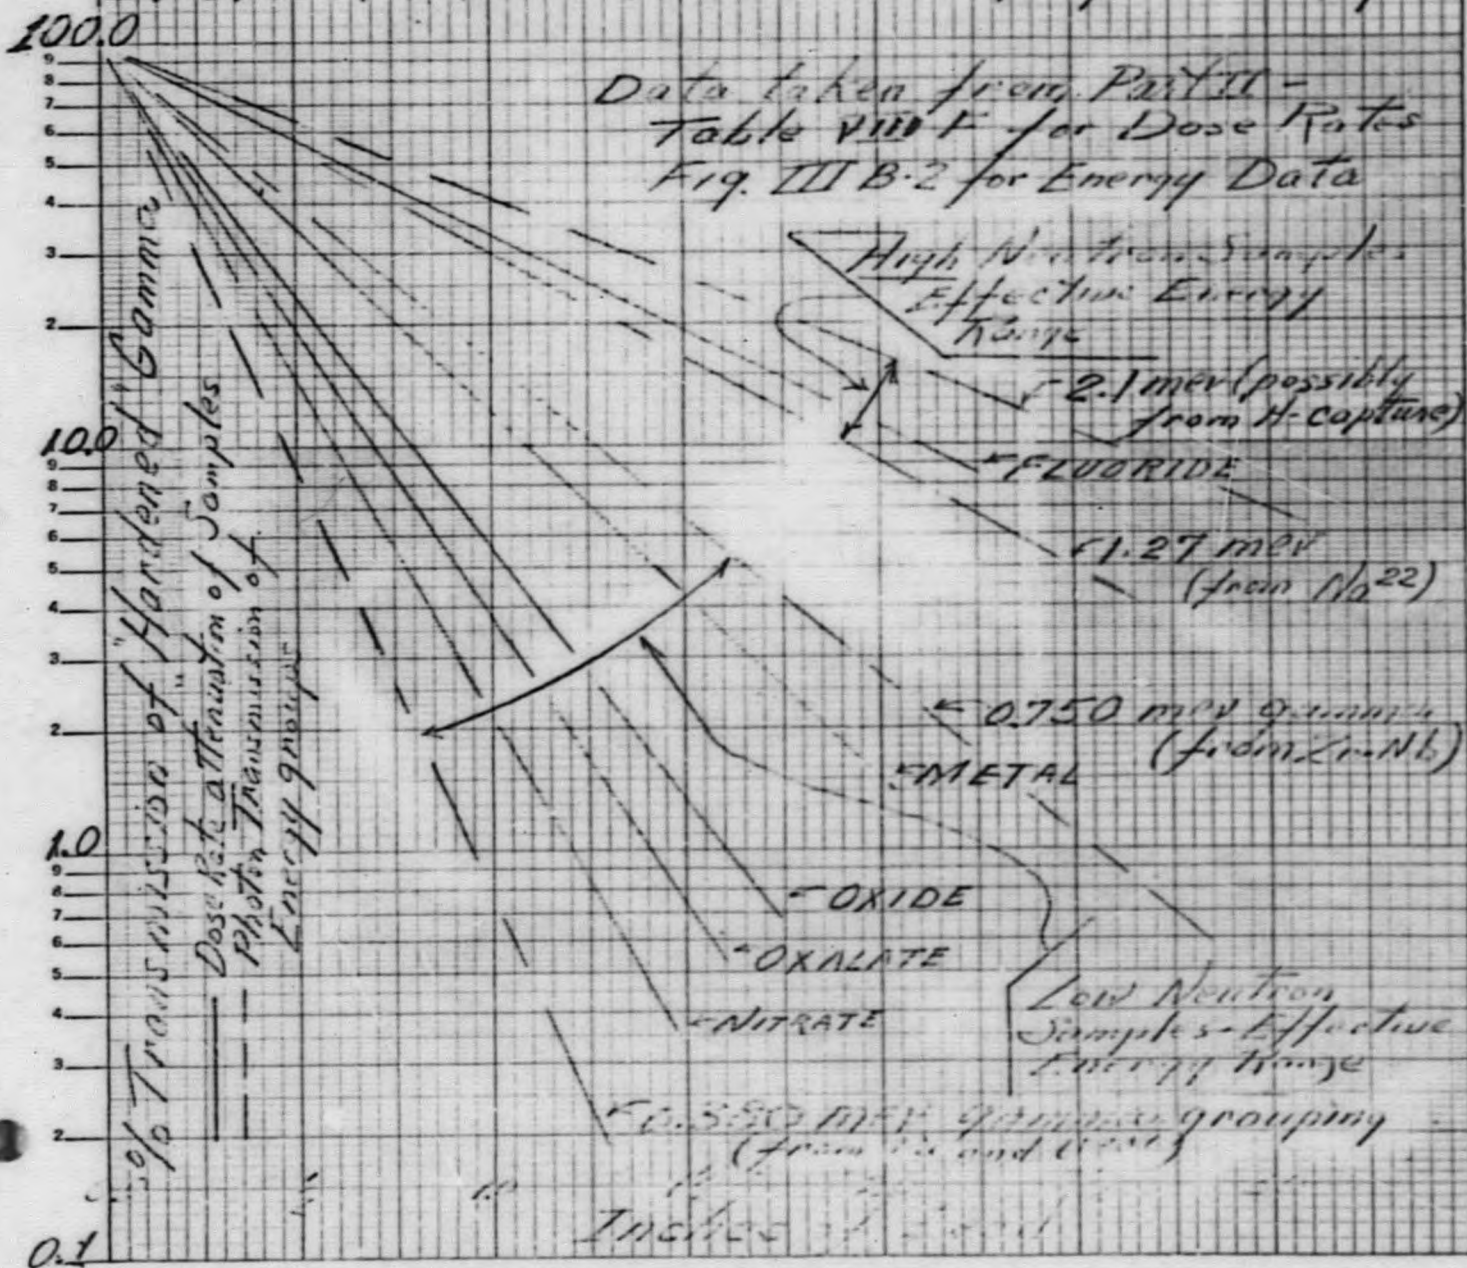 100.0
9
8
7
6
5
4
3
2
10.0
9
8
7
6
5
4
3
2
1.0
9
8
7
6
5
4
3
2
0.1
% Transmission of "Hardened" Gamma
Dose Rate attenuation of Samples
Photon Transmission of
Energy groups
Data taken from Part II -
Table VIII F for Dose Rates
Fig. III B-2 for Energy Data
High Neutron Samples
Effective Energy
Range
2.1 mev (possibly
from H-capture)
FLUORIDE
1.27 mev
(from Na22)
0.750 mev gamma
(from Zr-Nb)
METAL
OXIDE
OXALATE
NITRATE
Low Neutron
Samples-Effective
Energy Range
mev gamma grouping
(from and
1.0
Inches of Lead